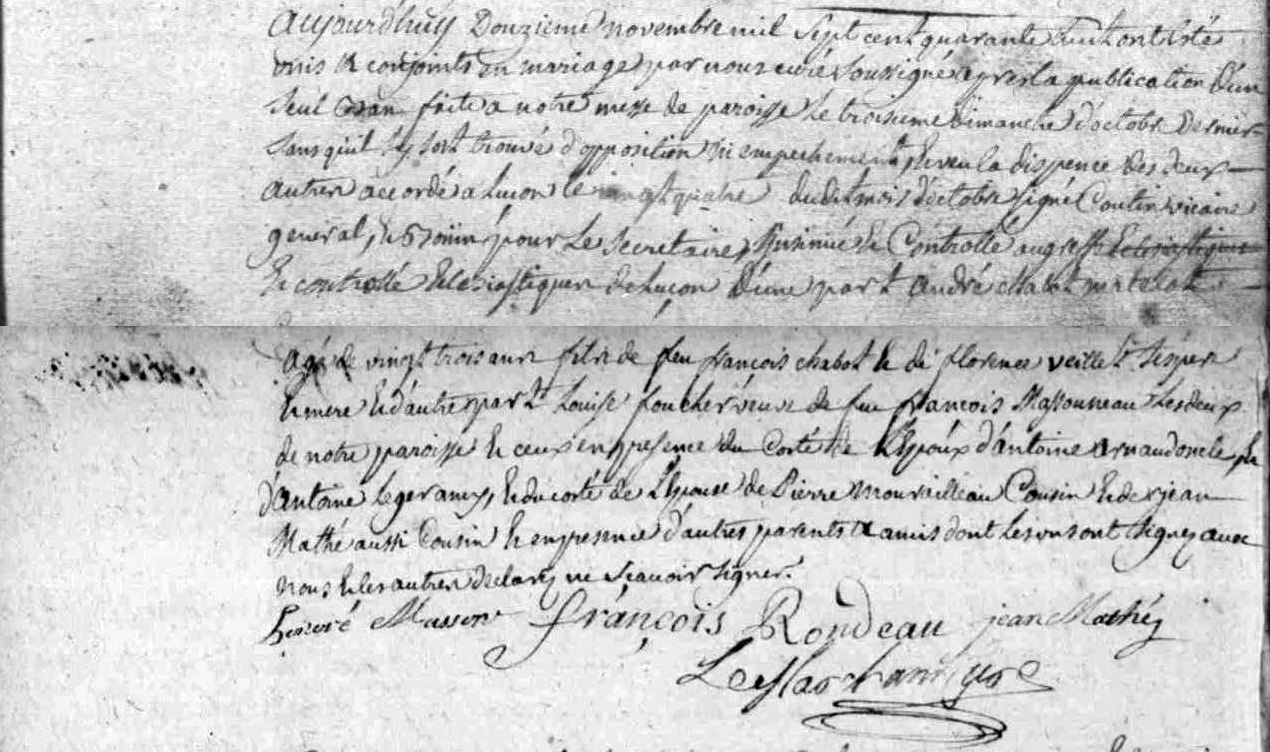 Aujourd'huy Douzieme novembre mil sept cent quarante huit ont esté
unis et conjoints en mariage par nous curé soussigné apres la publication d'un
seul ban faite a notre messe de paroisse le troisieme dimanche d'octobre dernier
sans quil s'y soit trouvé d'opposition ni empechement, et veu la dispence des deux
autres accordé a Luçon le vingt quatre dudit mois d'octobre signé Coutin vicaire
general, et pour le secretaire, insinué et Controllé au greffe Eclesiastique
et controllé Eclesiastiques de Luçon d'une part André chabot matelot
agé de vingt trois ans fils de feu françois chabot et de florence veillet ses pere
et mere et d'autre part Louise foucher veuve de feu francois Massouneau les deux
de notre paroisse et ceux en presence du costé de l'Epoux d'antoine arnaud oncle
d'antoine leger amys, et du costé de l'Epouse de Pierre Mourailleau Cousin et de jean
Mathé aussi Cousin et en presence d'autres parents et amis dont les uns ont signez avec
nous et les autres declarez ne sçavoir signer.
honoré Masson françois Rondeau jean Mathé